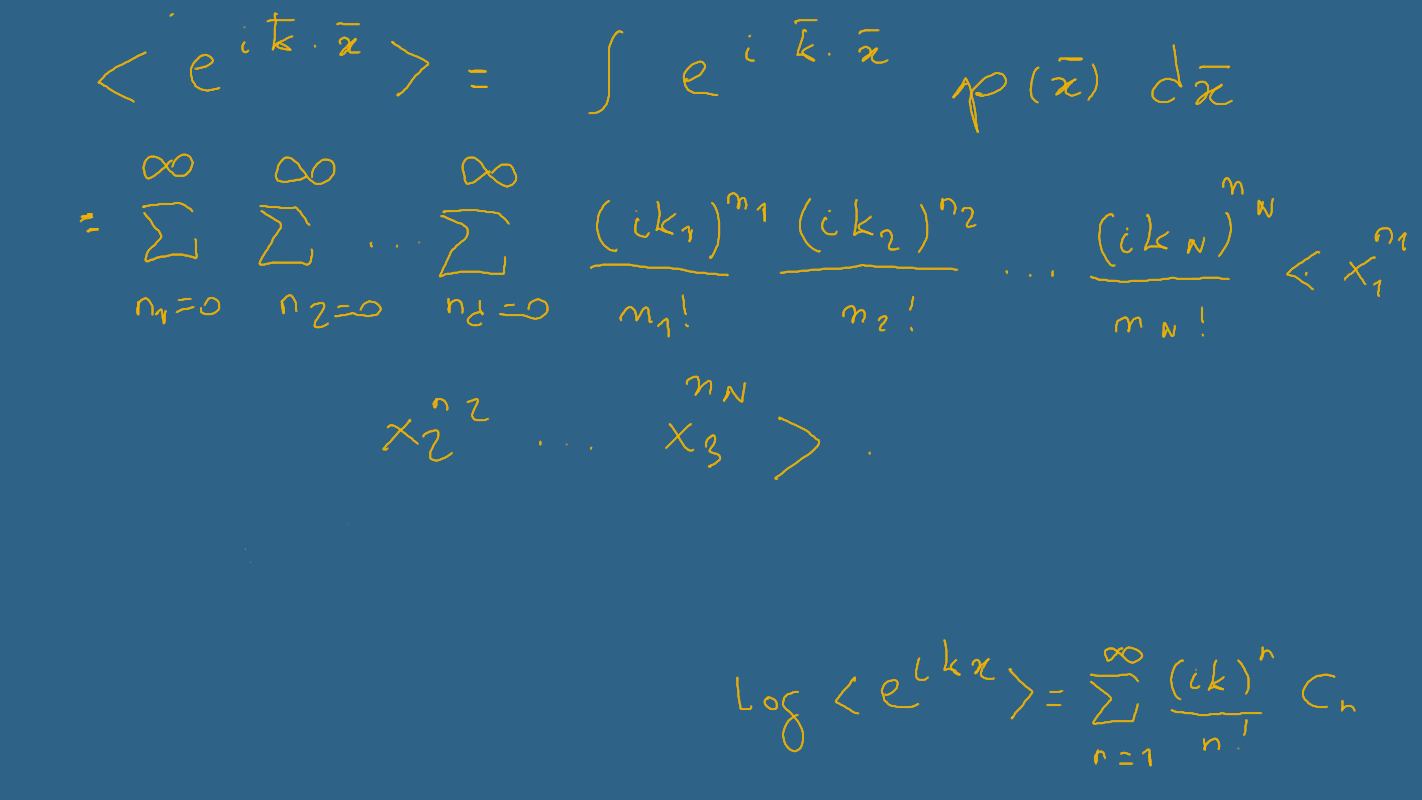 < e^{i k̄ · x̄} > = ∫ e^{i k̄ · x̄} p(x̄) dx̄
= ∑_{n_1=0}^{∞} ∑_{n_2=0}^{∞} ... ∑_{n_d=0}^{∞} (ik_1)^{n_1}/n_1! (ik_2)^{n_2}/n_2! ... (ik_N)^{n_N}/n_N! < x_1^{n_1}
x_2^{n_2} ... x_3^{n_N} > .
Log < e^{ikx} > = ∑_{n=1}^{∞} (ik)^n/n! C_n